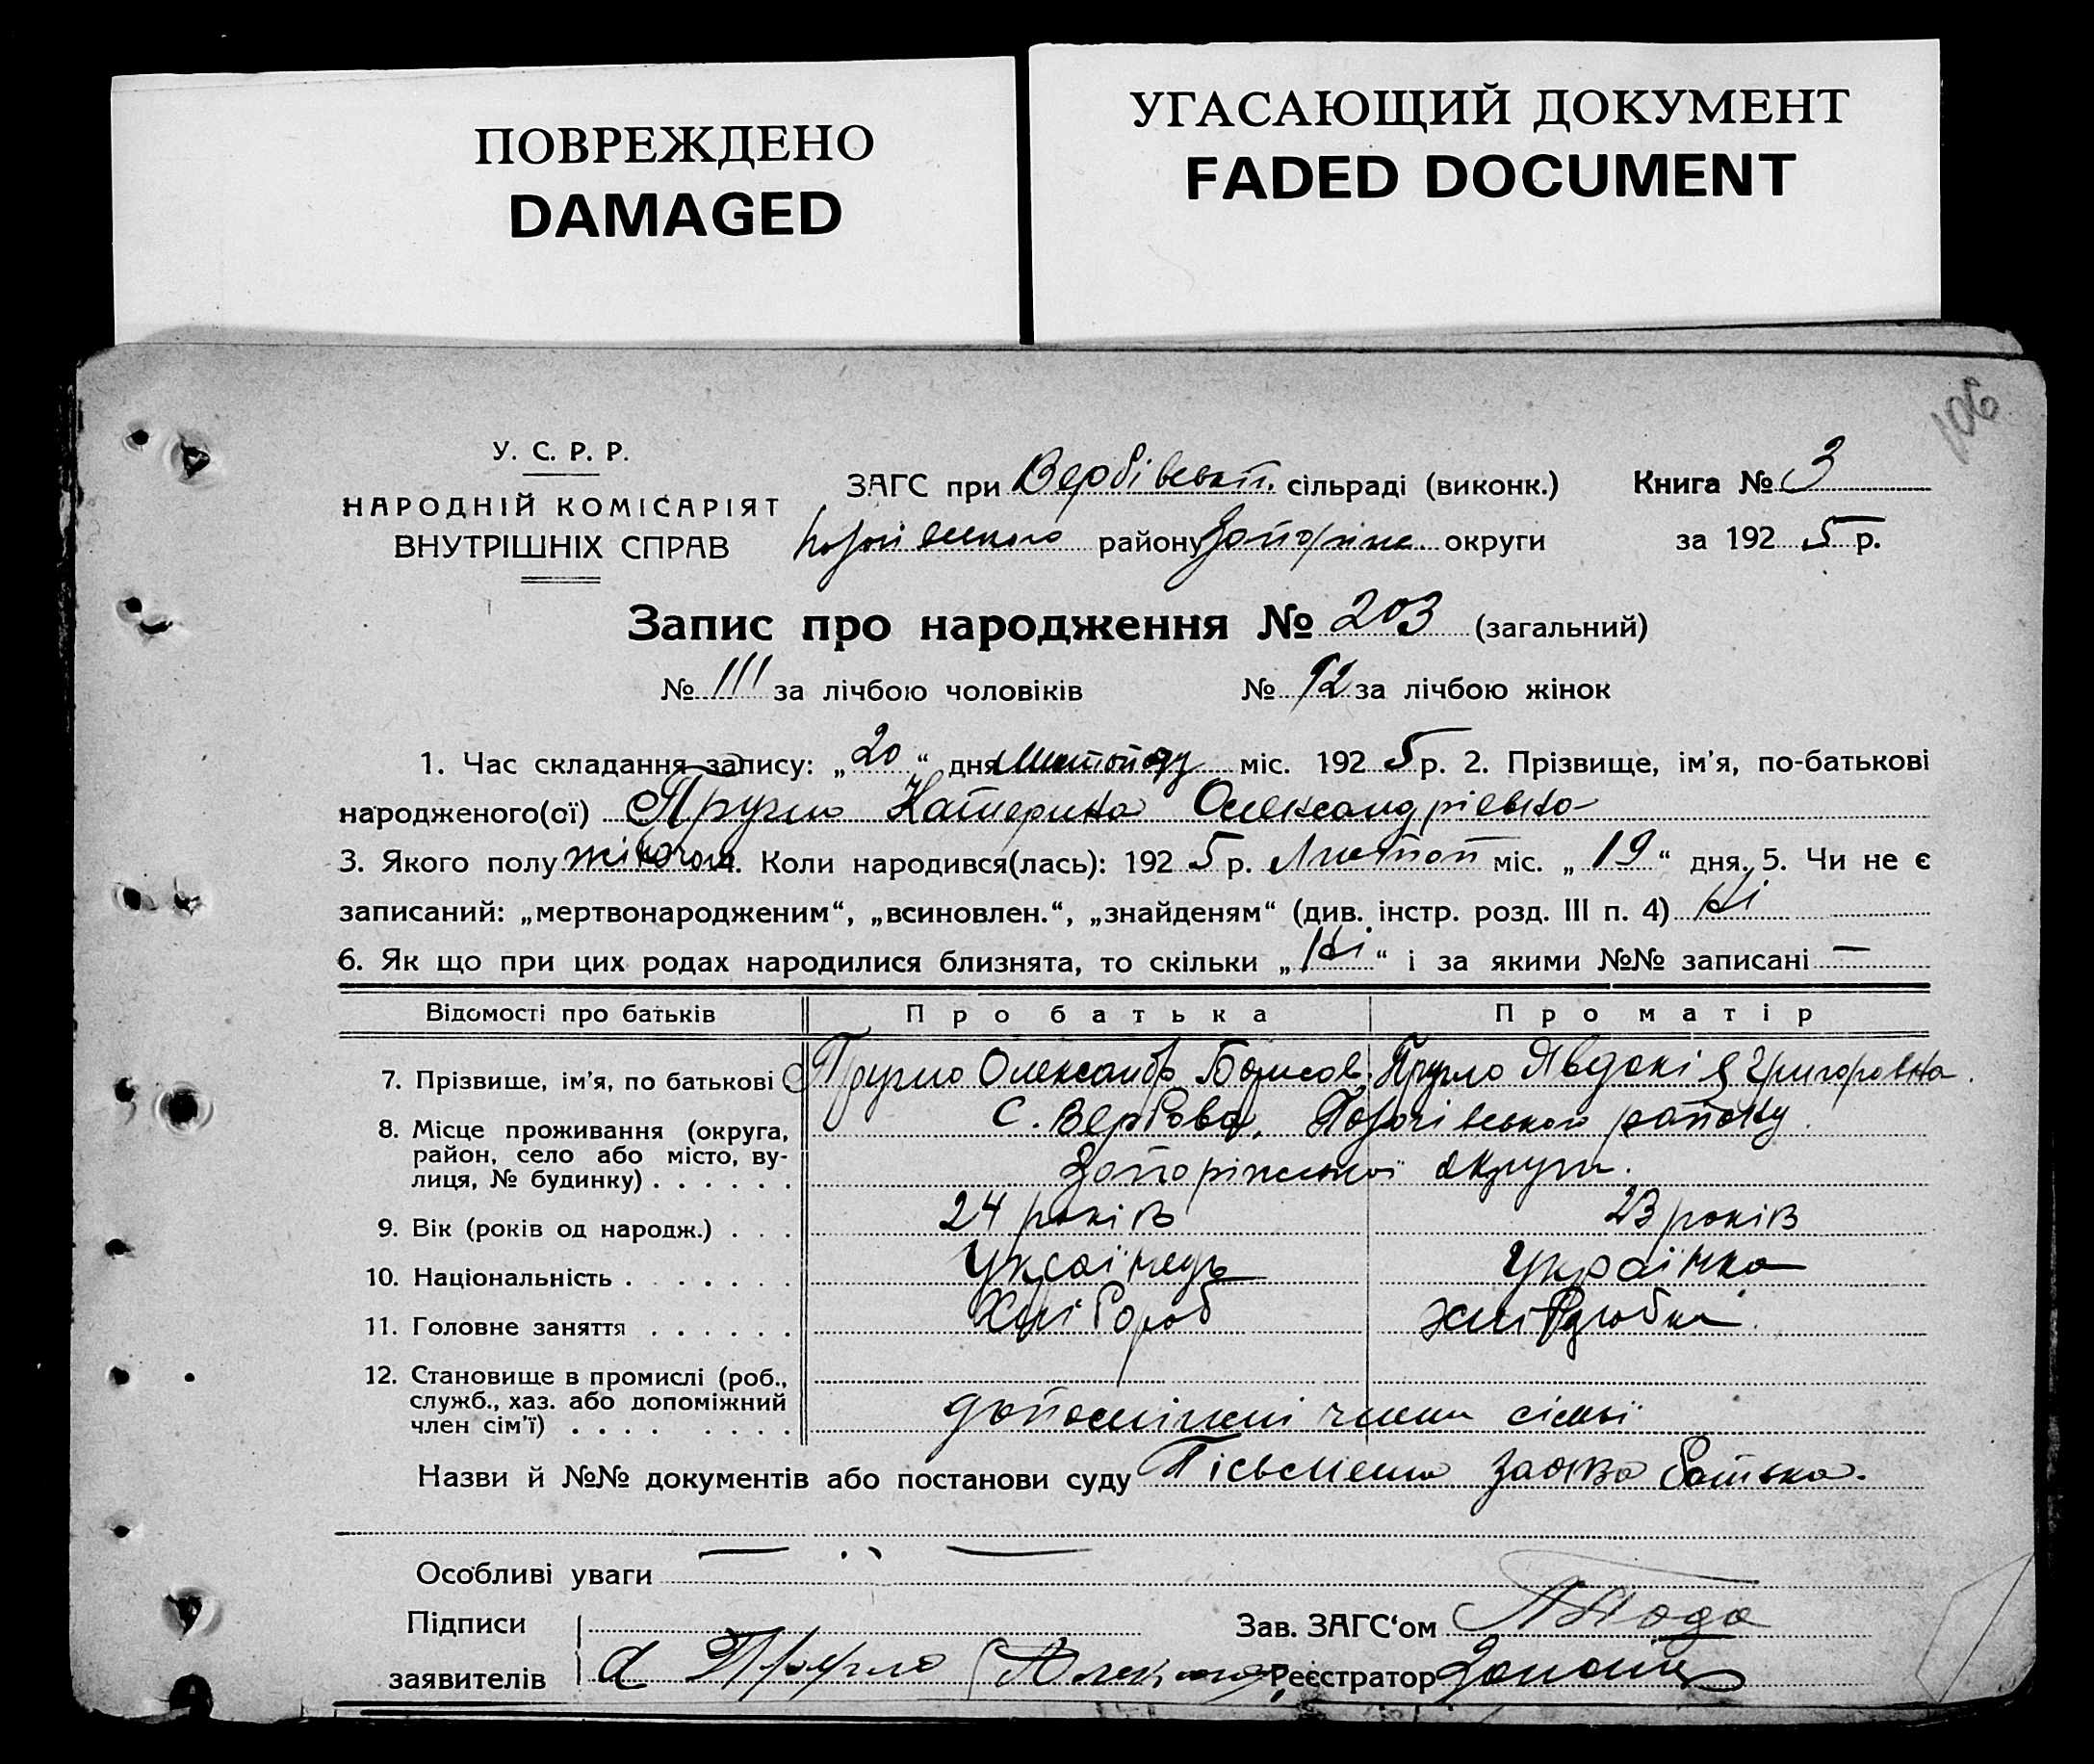 ПОВРЕЖДЕНО
DAMAGED
УГАСАЮЩИЙ ДОКУМЕНТ
FADED DOCUMENT
106
У. С. Р. Р.
НАРОДНІЙ КОМІСАРІЯТ
ВНУТРІШНІХ СПРАВ
ЗАГС при Вербівськ. сільраді (виконк.)
району Запоріж. округи
Книга № 3
за 1925 р.
Запис про народження № 203 (загальний)
№ 111 за лічбою чоловіків № 92 за лічбою жінок
1. Час складання запису: „20“ дня Листопаду міс. 1925 р. 2. Прізвище, ім'я, по-батькові
народженого(ої) Катерина Олександрієвна
3. Якого полу жіночої 4. Коли народився(лась): 1925 р. Листоп міс. „19“ дня. 5. Чи не є
записаний: „мертвонародженим“, „всиновлен.“, „знайденям“ (див. інстр. розд. III п. 4) Ні
6. Як що при цих родах народилися близнята, то скільки „Ні“ і за якими №№ записані —
Відомості про батьків Про батька Про матір
7. Прізвище, ім'я, по батькові Олександр Борисов. Явдокія Григоровна.
8. Місце проживання (округа, район, село або місто, вулиця, № будинку) . . . . . . С. Вербова, Пологівського району
Запоріжської округи.
9. Вік (років од народж.) . . . 24 років 23 років
10. Національність . . . . . . . Українець Українка
11. Головне заняття . . . . . . Хлібороб Хліборобка
12. Становище в промислі (роб., служб., хаз. або допоміжний член сім'ї) . . . . . . . . допоміжні члени сімьї
Назви й №№ документів або постанови суду Пісьмена заява батька.
Особливі уваги
Підписи
заявителів
Зав. ЗАГС'ом
Реєстратор